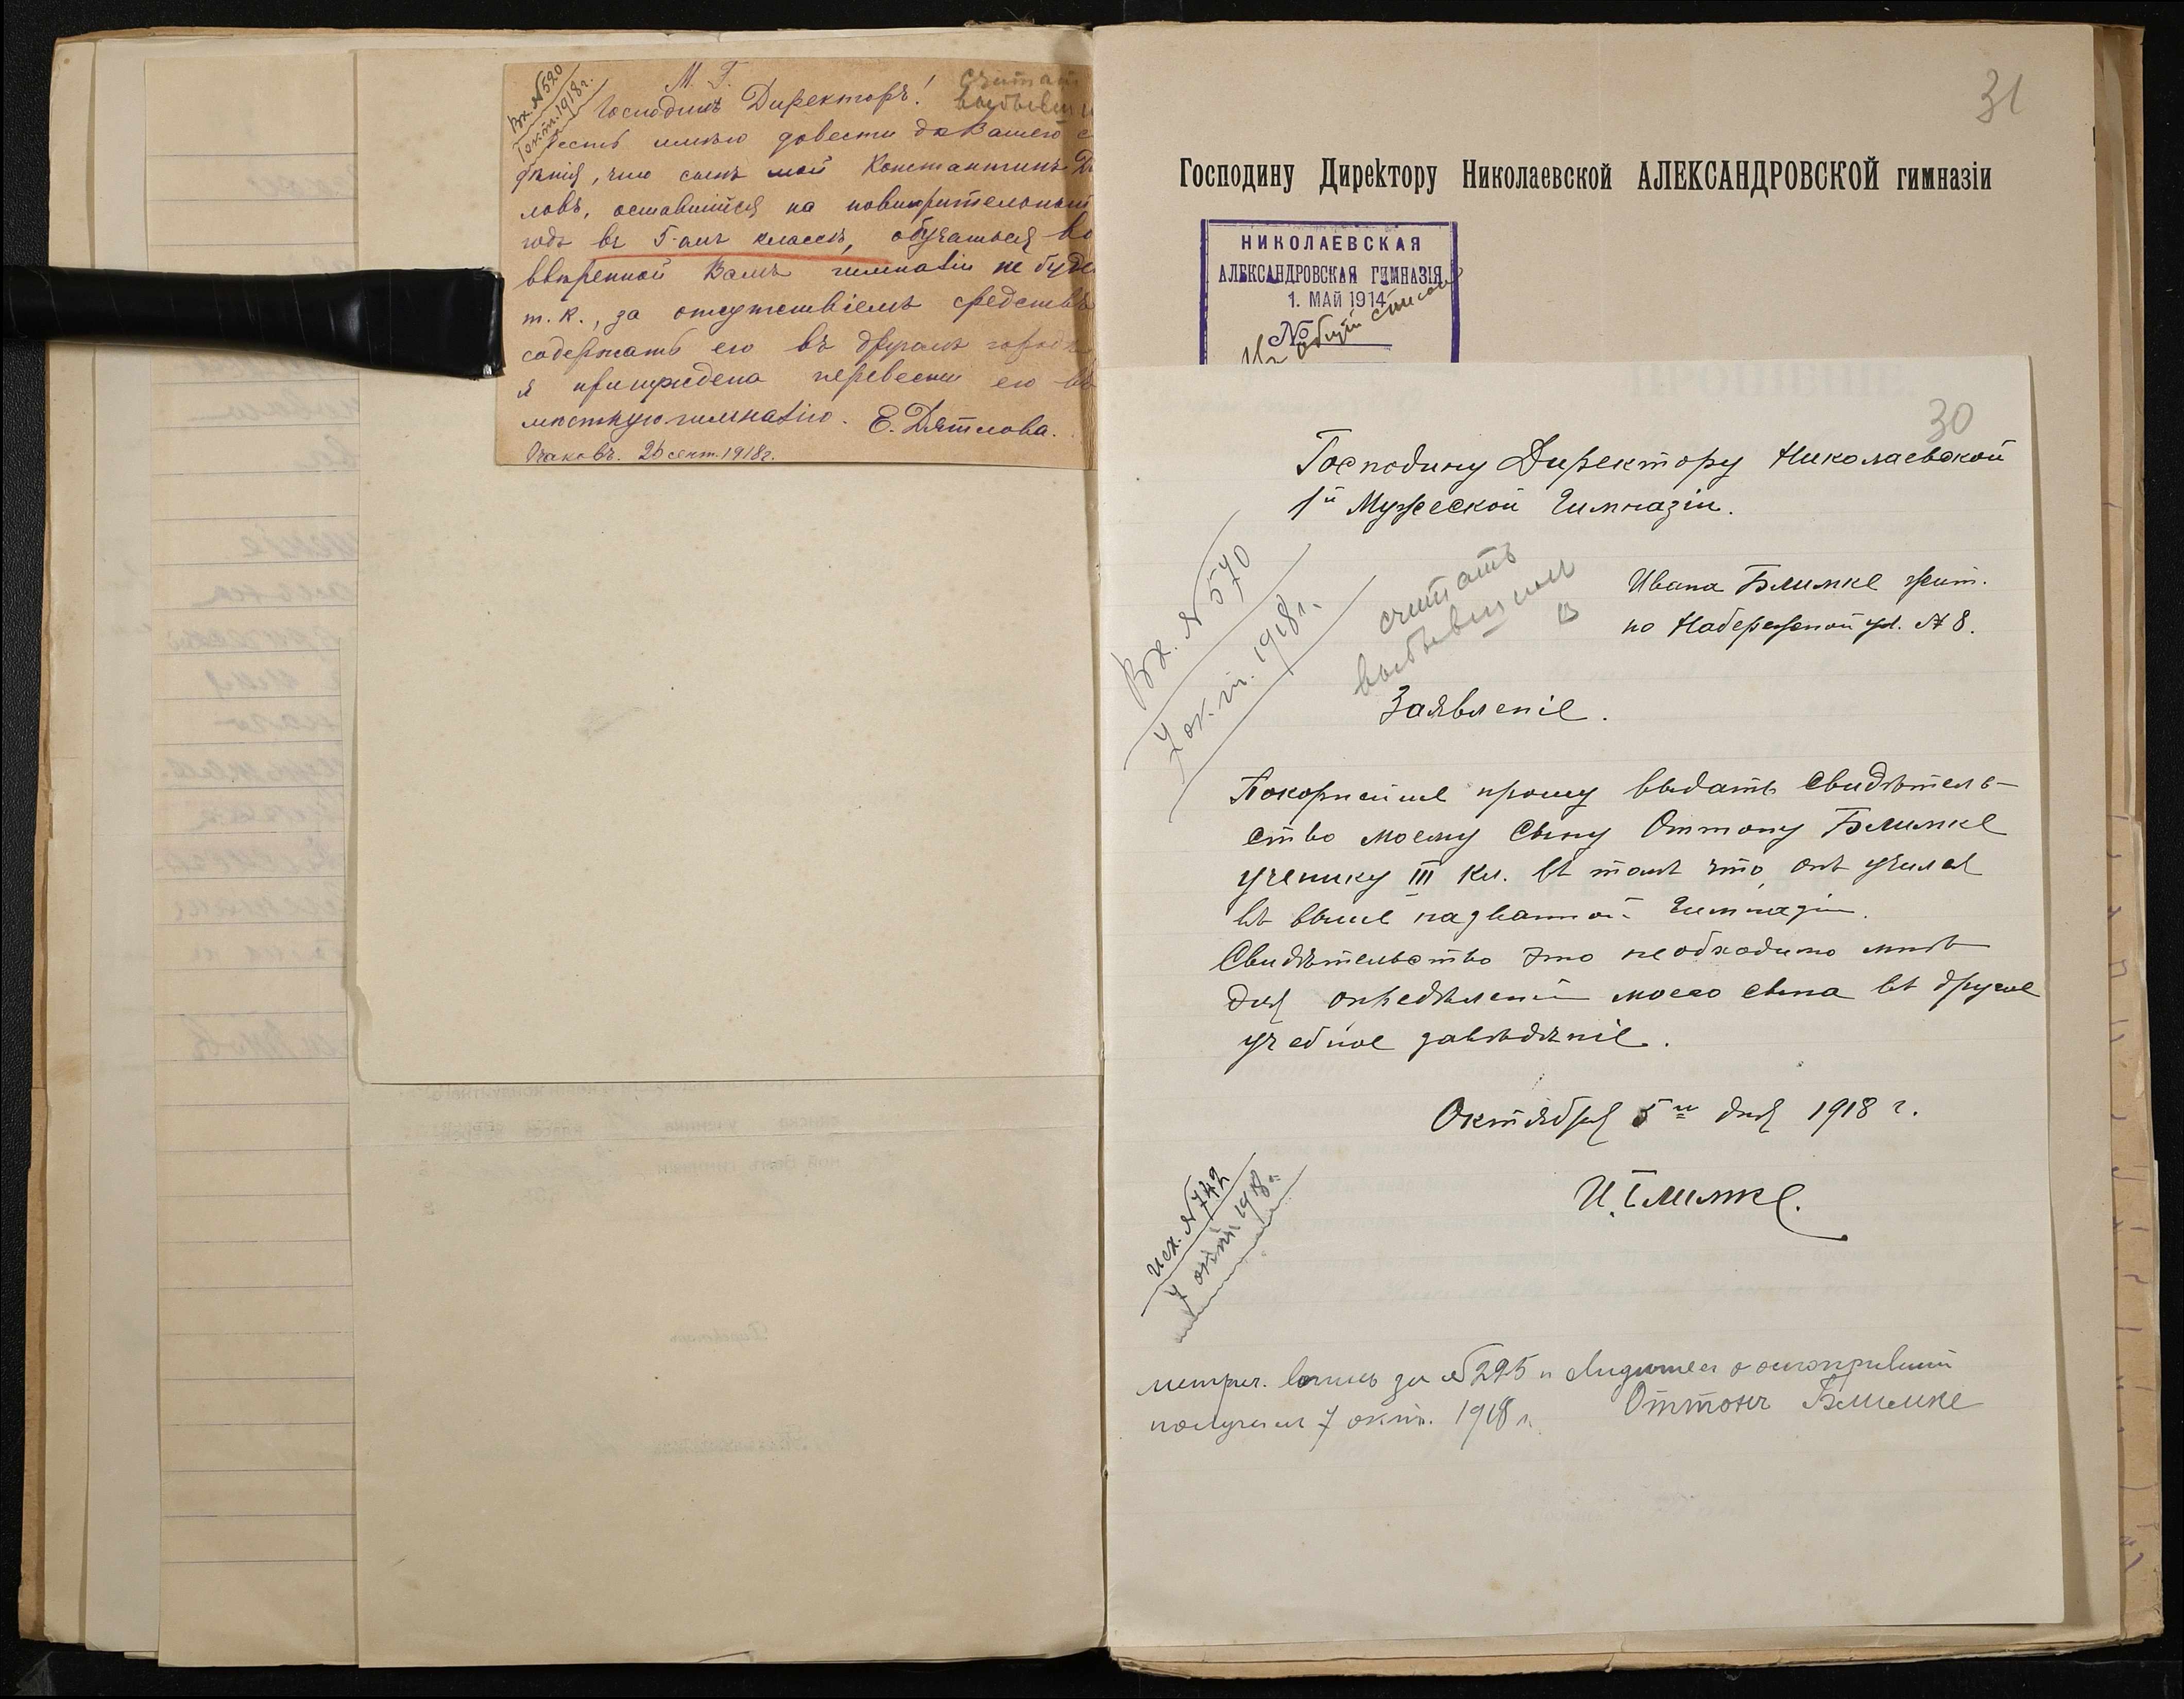 Вх. №520
1 окт. 1918 г.
М. Г.
Господинъ Директоръ!
считать
выбывши
Честь имѣю довести до Вашего с
дѣнія, что сынъ мой Константинъ Дя
ловъ, оставшійся на повторительный
годъ въ 5-омъ классѣ, обучаться во
ввѣренной Вамъ гимназіи не буде
т. к., за отсутствіемъ средствъ
содержать его въ другомъ городѣ
я принуждена перевести его въ
мѣстную гимназію. Е. Дятлова.
Очаковъ. 26 сент. 1918 г.
31
Господину Директору Николаевской АЛЕКСАНДРОВСКОЙ гимназіи
НИКОЛАЕВСКАЯ
АЛЕКСАНДРОВСКАЯ ГИМНАЗІЯ
1. МАЙ 1914
№
30
Господину Директору Николаевской
1й Мужеской Гимназіи.
Вх. №570
7 окт. 1918 г.
считать
выбывшим
Ивана Блимке жит.
по Набережной ул. № 8.
Заявленіе.
Покорнейше прошу выдать свидѣтель-
ство моему сыну Оттону Блимке
ученику III кл. въ томъ что онъ учился
въ выше названной Гимназіи.
Свидѣтельство это необходимо мнѣ
для опредѣленія моего сына въ другое
учебное завѣдѣніе.
Октября 5го дня 1918 г.
И. Блимке.
исх. №742
7 окт. 1918 г.
метрич. выпись за №295 и
получил 7 окт. 1918 г. Оттонъ Блимке